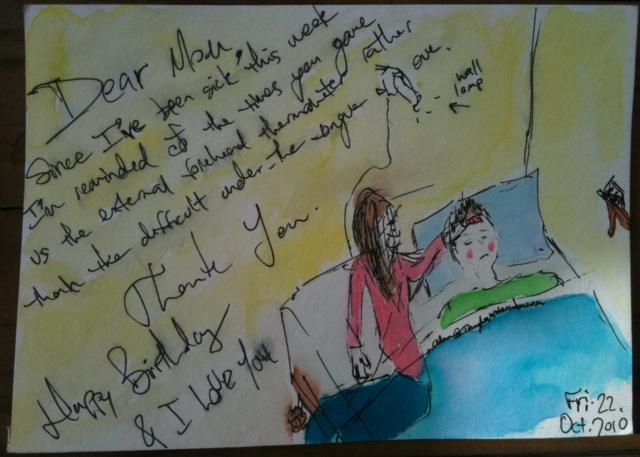 Dear Mom,
Since I've been sick this week
I'm reminded of the times you gave
us the external forehead thermometer rather
than the difficult under-the-tongue one.
Thank You.
Happy Birthday
& I love you
wall
lamp
Fri. 22.
Oct. 2010